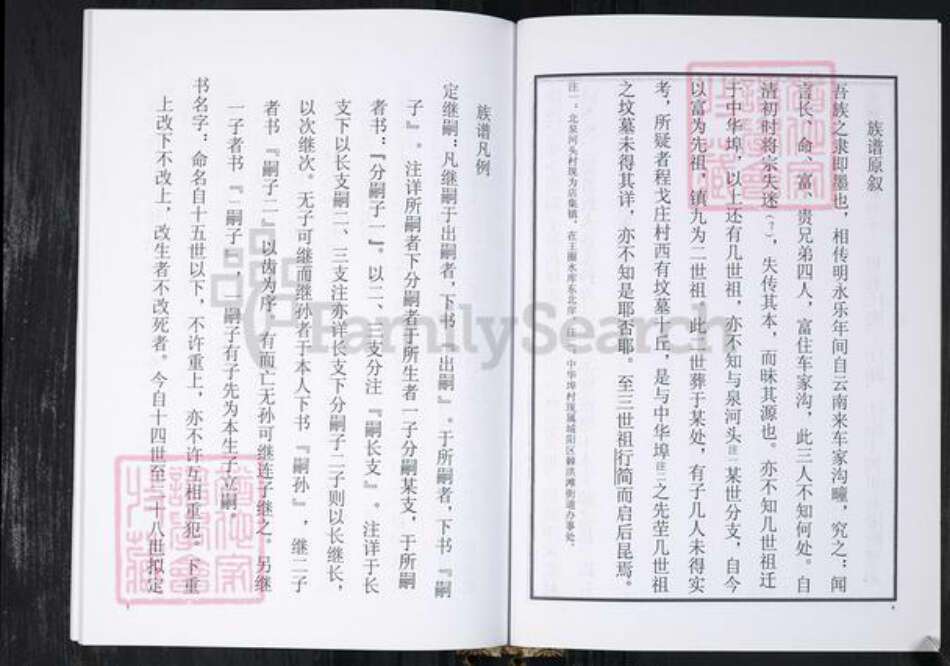 族谱原叙
吾族之隶即墨也，相传明永乐年间自云南来车家沟疃，究之：闻
言长、命、富、贵兄弟四人，富住车家沟，此三人不知何处。自
清初时将宗失迷（？），失传其本，而昧其源也。亦不知几世祖迁
于中华埠，以上还有几世祖，亦不知与泉河头注一某世分支，自今
以富为先祖，镇九为二世祖，此二世葬于某处，有子几人未得实
考，所疑者程戈庄村西有坟墓十丘，是与中华埠注二之先茔几世祖
之坟墓未得其详，亦不知是耶否耶。至三世祖行简而启后昆焉。
注一：北泉河头村现为店集镇，在王圈水库东北岸。注二：中华埠村现属城阳区棘洪滩街道办事处。
族谱凡例
定继嗣：凡继嗣于出嗣者，下书『出嗣』。于所嗣者，下书『嗣
子』。注详所嗣者下分嗣者于所生者一子分嗣某支，于所嗣
者书：『分嗣子一』。以二、三支分注『嗣长支』。注详于长
支下以长支嗣二、三支注亦详长支下分嗣子二子则以长继长，
以次继次。无子可继而继孙者于本人下书『嗣孙』，继二子
者书『嗣子二』以齿为序。有而亡无孙可继连子继之。另继
一子者书『二嗣子』，一嗣子有子先为本生子立嗣。
书名字：命名自十五世以下，不许重上，亦不许互相重犯。下重
上改下不改上，改生者不改死者。今自十四世至二十八世拟定
FamilySearch